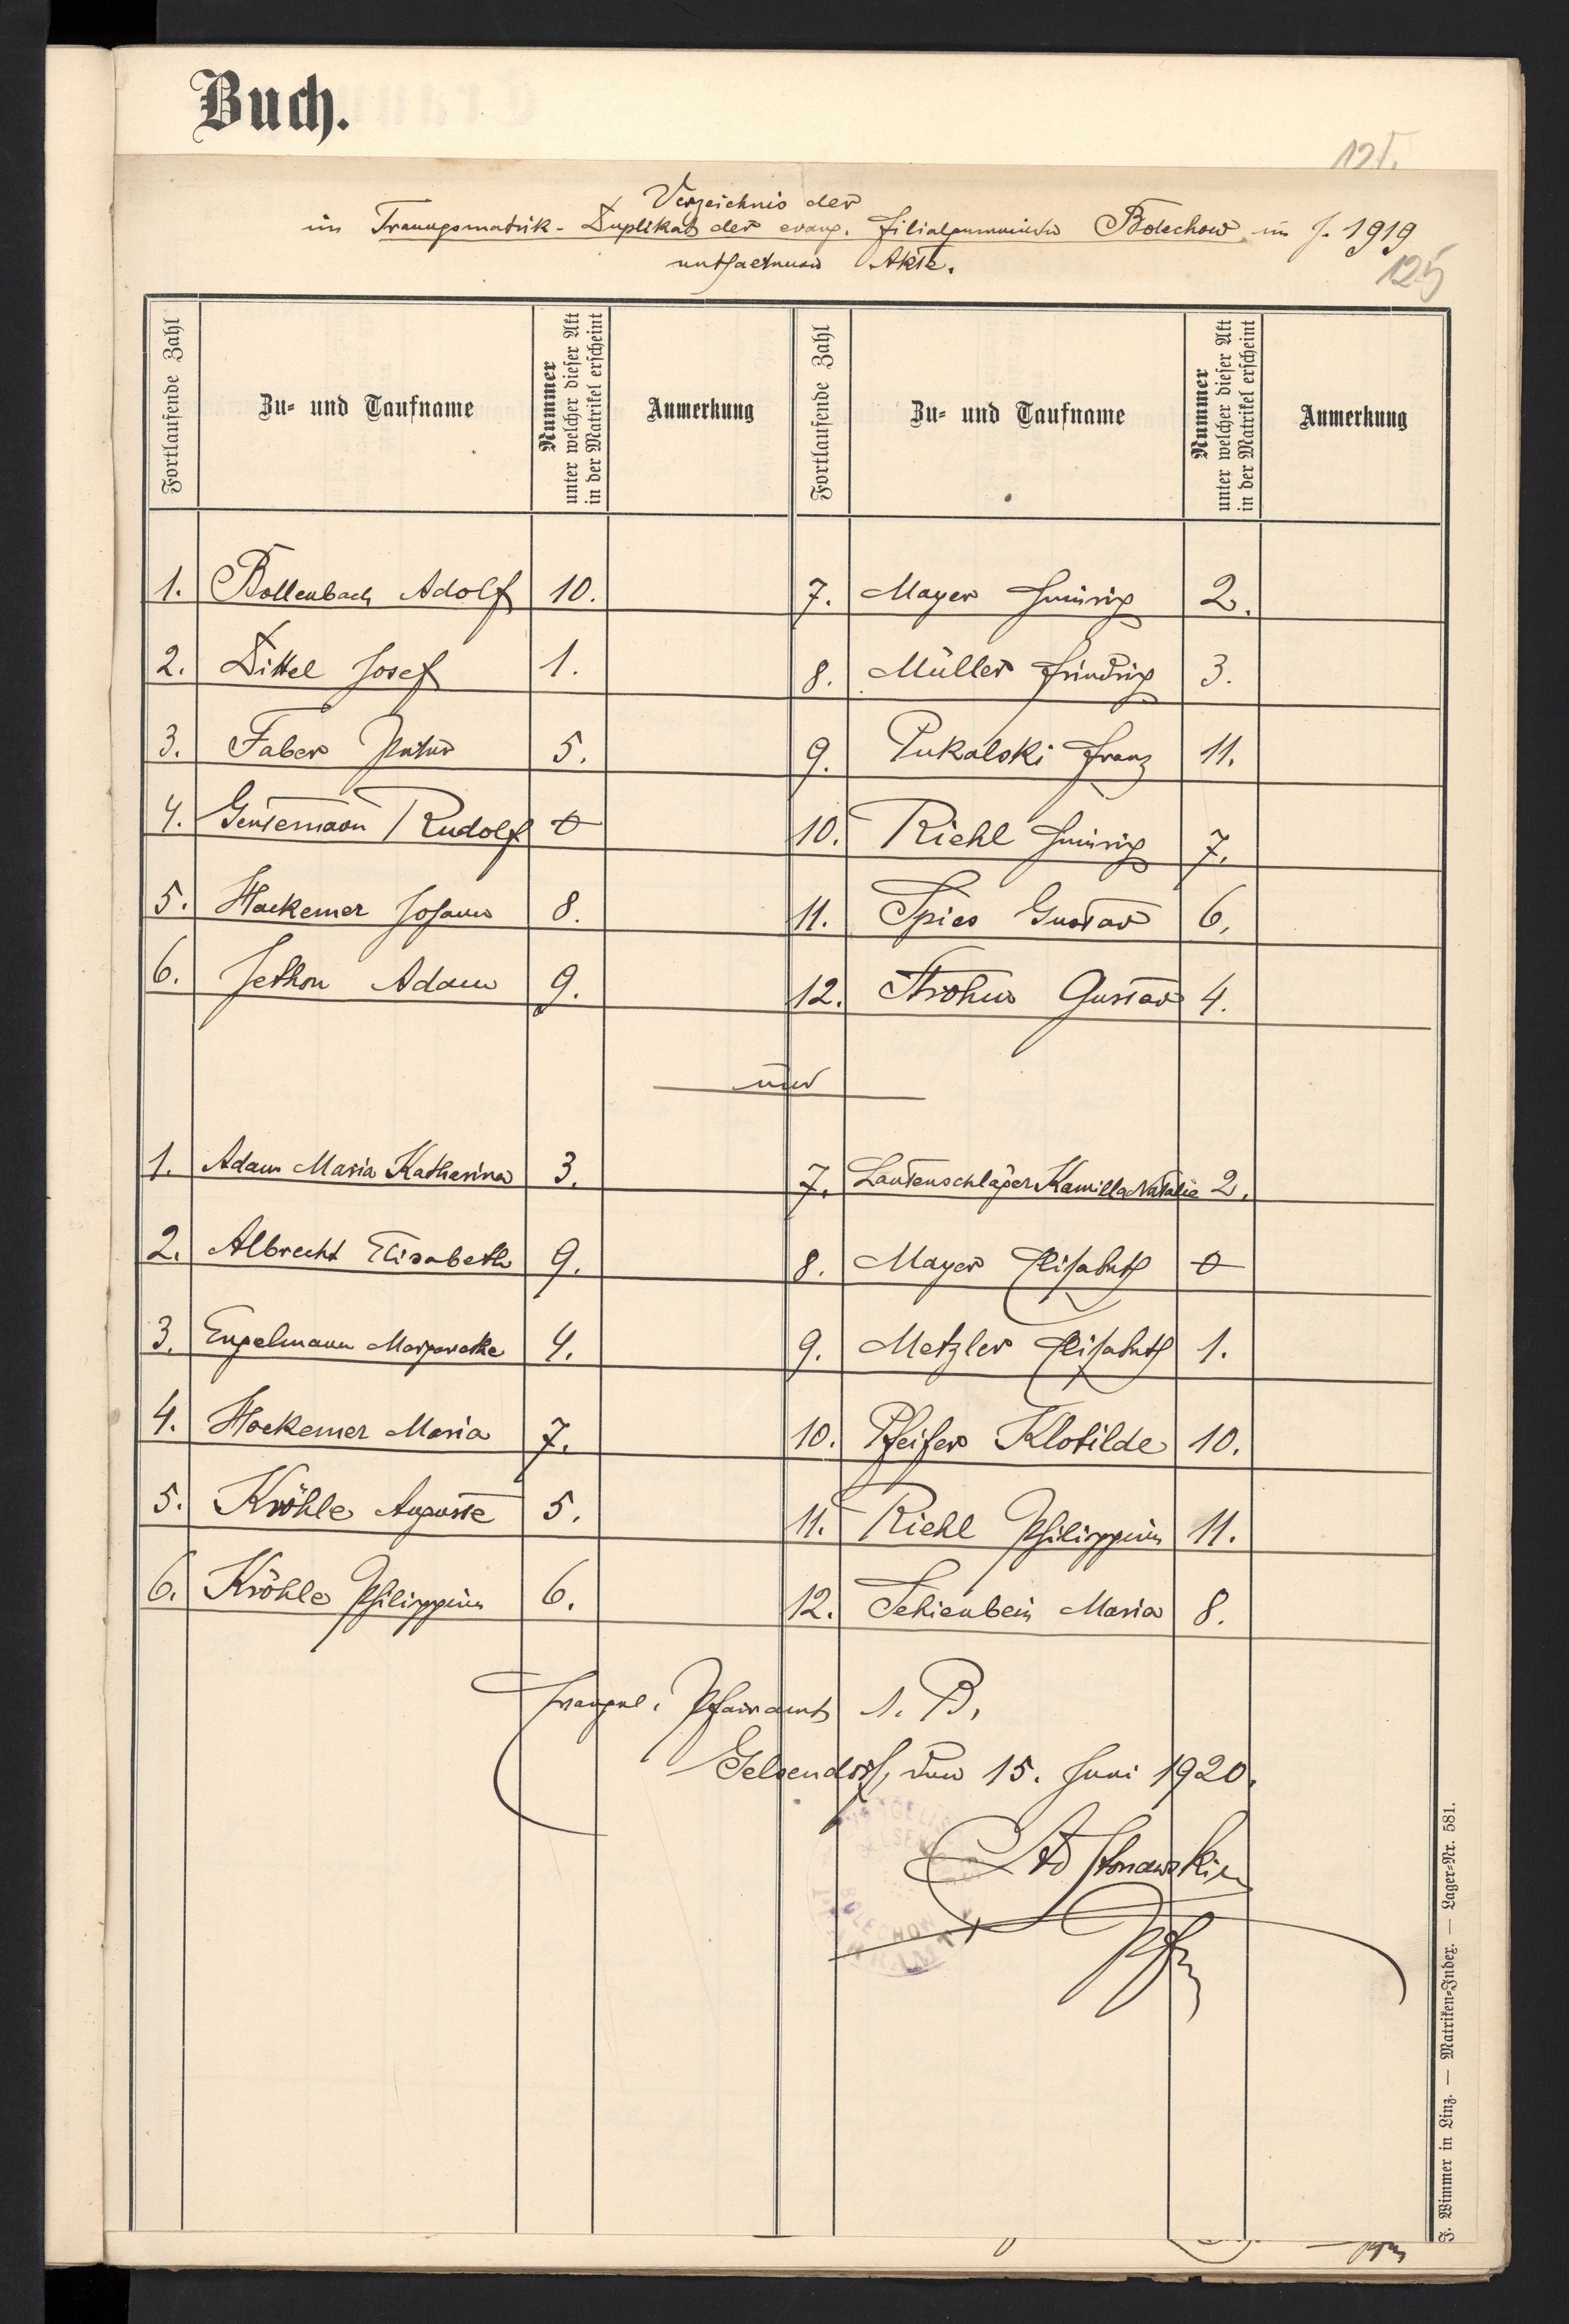 Buch.
121.
Verzeichnis der
im Trauungsmatrik-Duplikat der evang. Filialgemeinde Bolechow im J. 1919
enthaltenen Akte.
125
Fortlaufende Zahl
Zu- und Taufname
Nummer
unter welcher dieser Akt
in der Matrikel erscheint
Anmerkung
Fortlaufende Zahl
Zu- und Taufname
Nummer
unter welcher dieser Akt
in der Matrikel erscheint
Anmerkung
1. Bollenbach Adolf 10.
2. Dittel Josef 1.
3. Faber Peter 5.
4. Gensemann Rudolf 0
5. Hackemer Johann 8.
6. Jethon Adam 9.
7. Mayer Heinrich 2.
8. Müller Friedrich 3.
9. Pukalski Franz 11.
10. Riehl Heinrich 7.
11. Spies Gustav 6.
12. Strohm Gustav 4.
und
1. Adam Maria Katharina 3.
2. Albrecht Elisabeth 9.
3. Engelmann Margarethe 4.
4. Hackemer Maria 7.
5. Kröhle Auguste 5.
6. Kröhle Philippine 6.
7. Lautenschläger Kamilla Natalie 2.
8. Mayer Elisabeth 0
9. Metzler Elisabeth 1.
10. Pfeifer Klotilde 10.
11. Riehl Philippine 11.
12. Schienbein Maria 8.
Evangel. Pfarramt A. B.
Gelsendorf, den 15. Juni 1920.
BOLECHOW
F. Wimmer in Linz. — Matriken-Index. — Lager-Nr. 581.